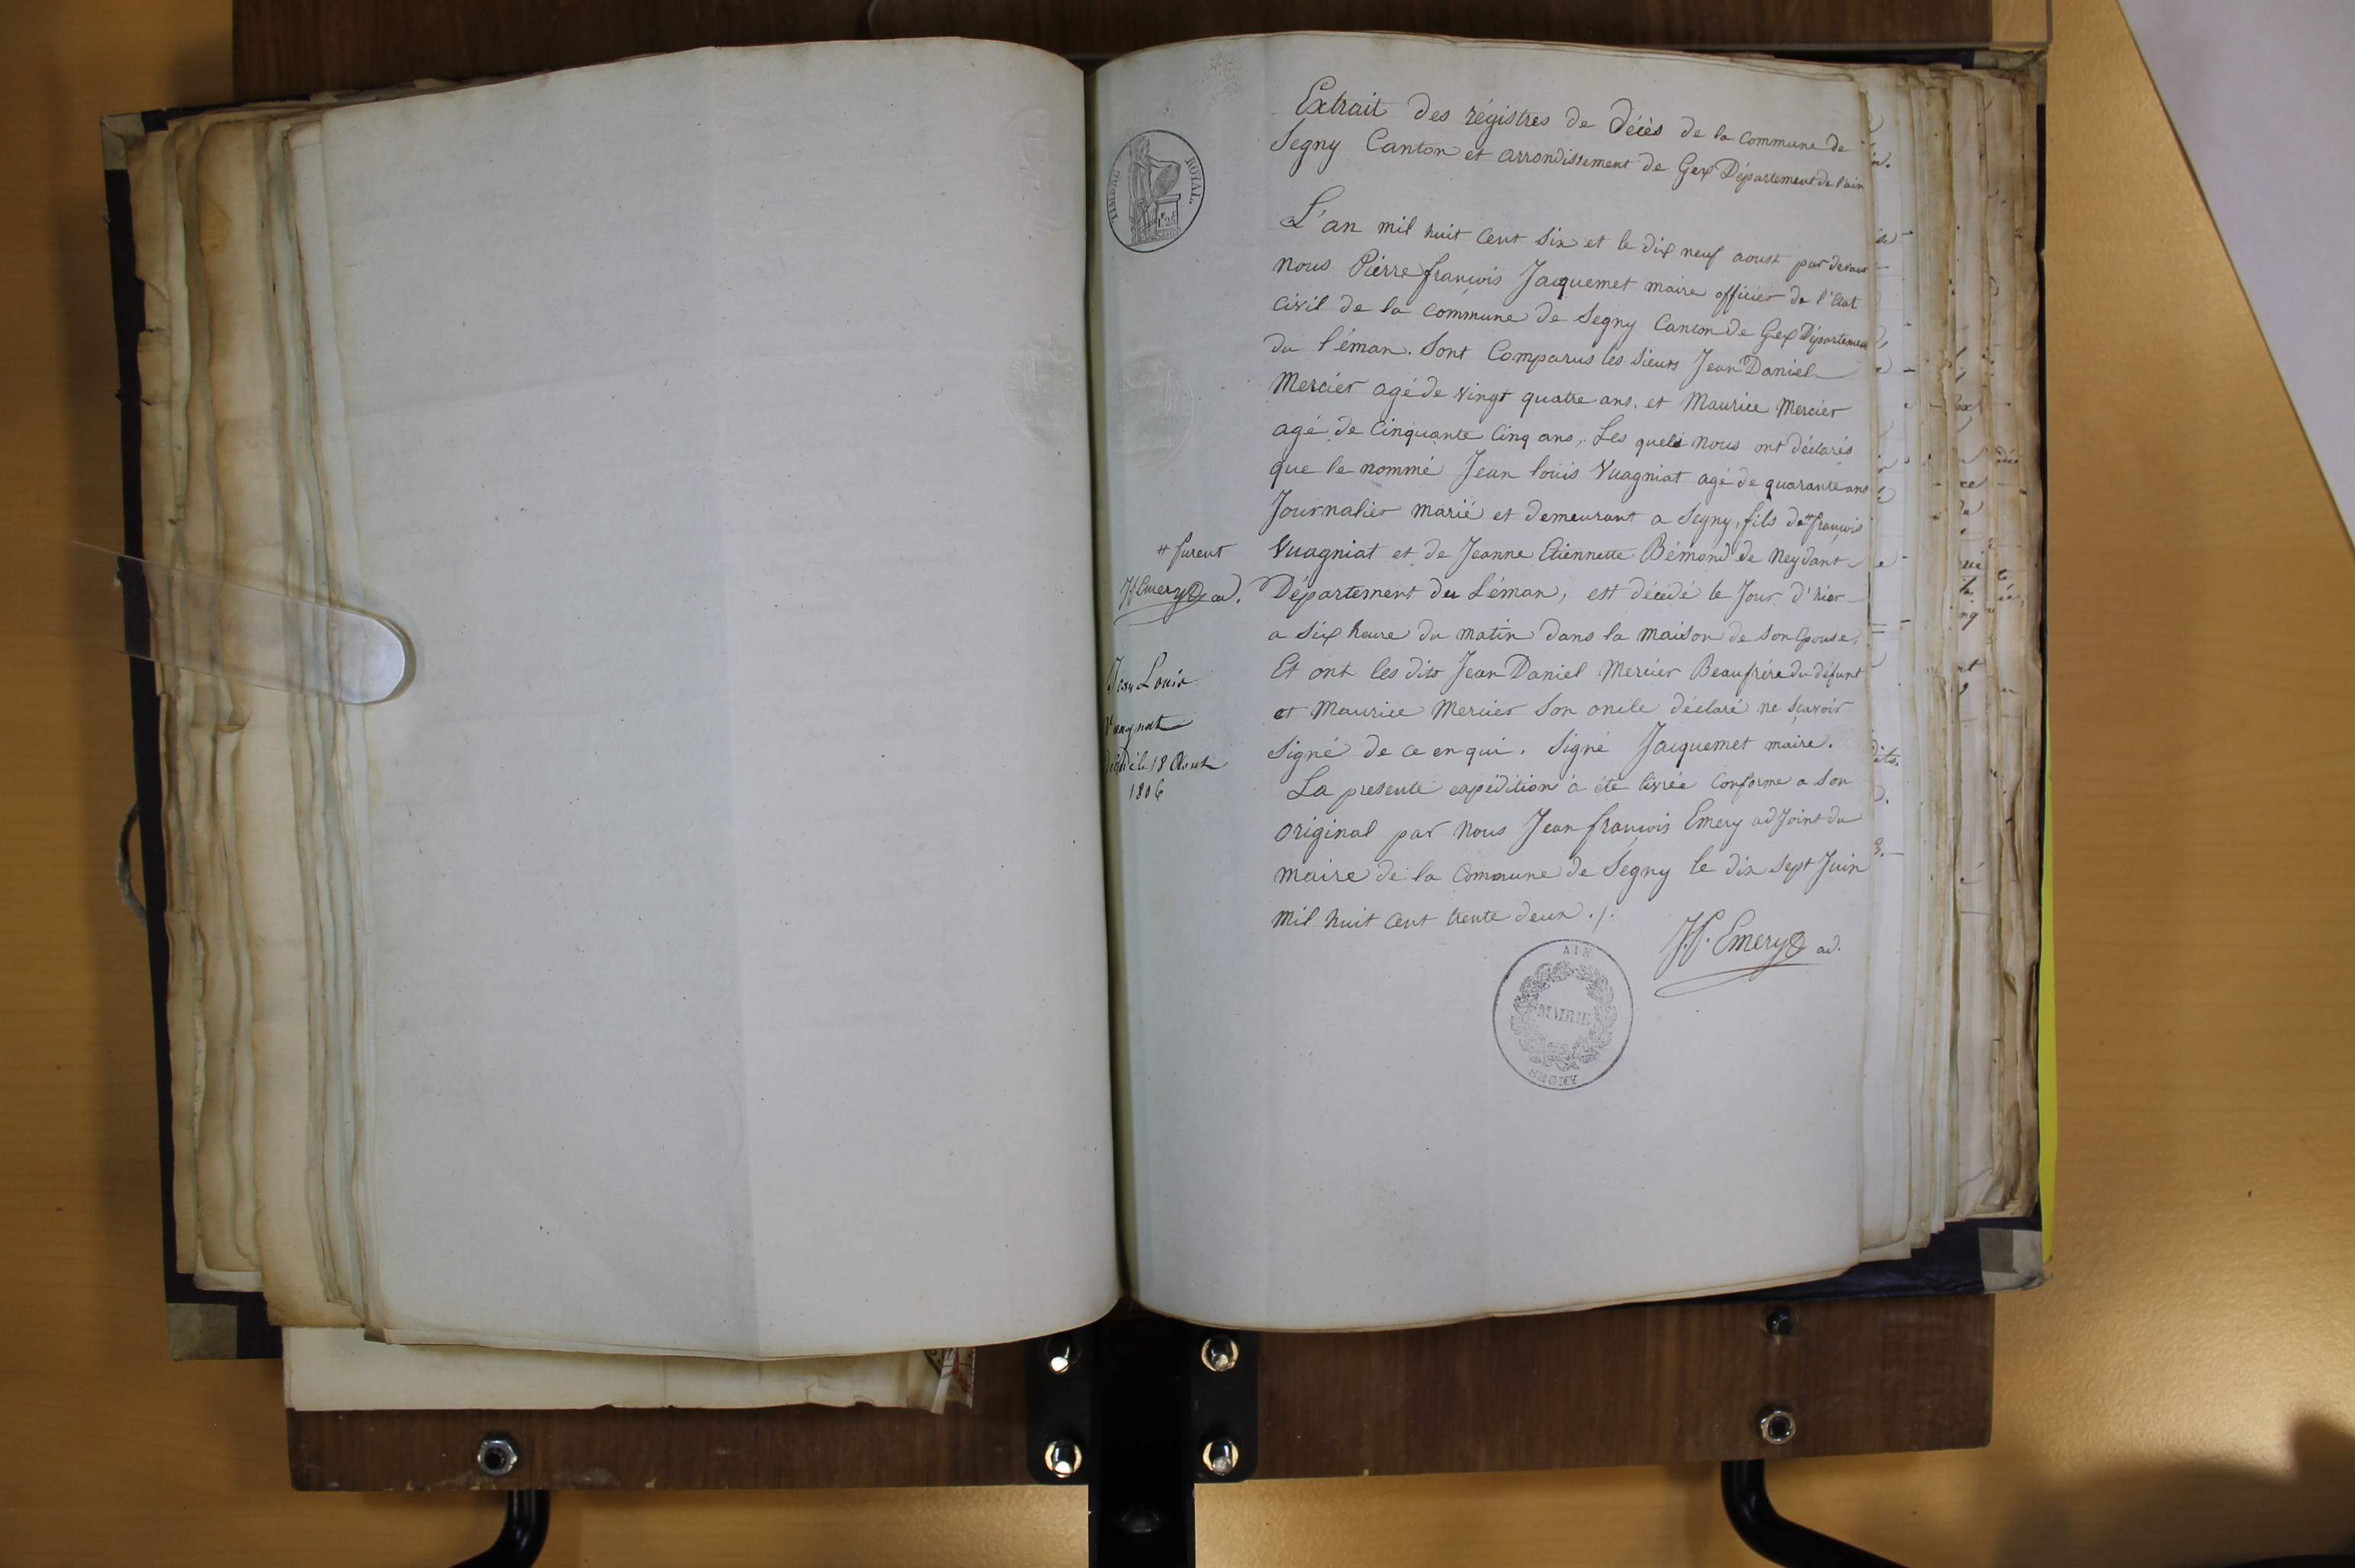 TIMBRE ROYAL.
1f.25c
Extrait des régistres de Décès de la Commune de
Segny Canton et arrondissement de Gex Département de l'ain
L'an mil huit cent six et le dix neuf aoust par devant
nous Pierre françois Jacquemet maire officier de l'Etat
civil de la commune de Segny Canton de Gex Département
du l'éman. Sont Comparus les sieurs Jean Daniel
Mercier agé de vingt quatre ans, et Maurice Mercier
agé de Cinquante Cinq ans, Les quels nous ont déclarés
que le nommé Jean louis Vuagniat agé de quarante ans
Journalier marié et demeurant a Segny, fils de # françois
Vuagniat et de Jeanne Etiennette Bémond de Neydant
Département du Léman, est décédé le Jour d'hier
a six heure du matin dans la maison de son Epouse,
Et ont les dits Jean Daniel Mercier Beaufrère du défunt
et Maurice Mercier son oncle déclaré ne sçavoir
signé de ce enqui. Signé Jacquemet maire.
La presente expédition à été livrée Conforme a son
original par nous Jean françois Emery adjoint du
maire de la Commune de Segny le dix sept Juin
mil huit cent trente deux ./.
J.f. Emery ad.
AIN
MAIRIE
SEGNY
# furent
J f Emery ad.
Jean Louis
Vuagnat
Décédé le 18 Aout
1806